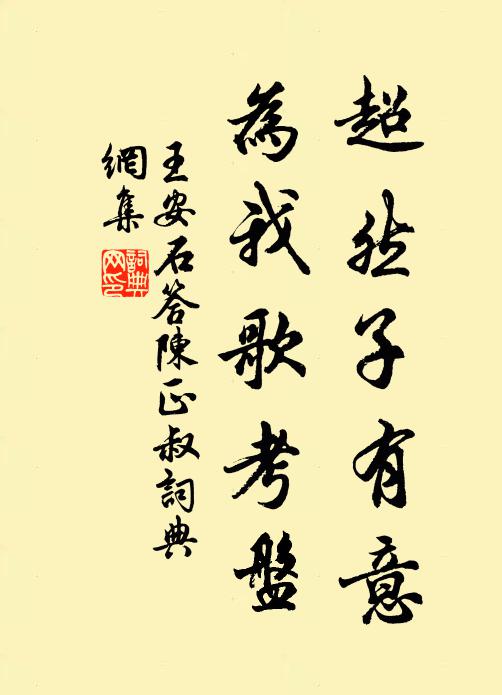 超然子有意
為我歌考盤
王安石答陳正叔詞典
網集
詞典網印